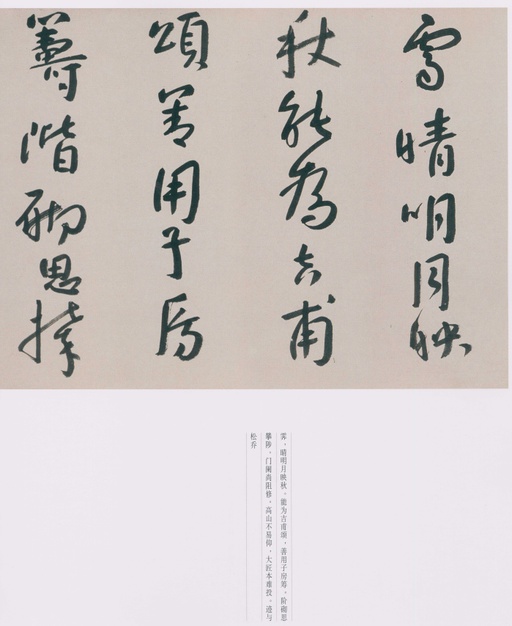 霽晴明月映
秋能為吉甫
頌善用子房
籌階砌思攀
霁，晴明月映秋，能为吉甫颂，善用子房筹，阶砌思
攀陟，门阑尚阻修，高山不易仰，大匠本难投，迹与
松乔